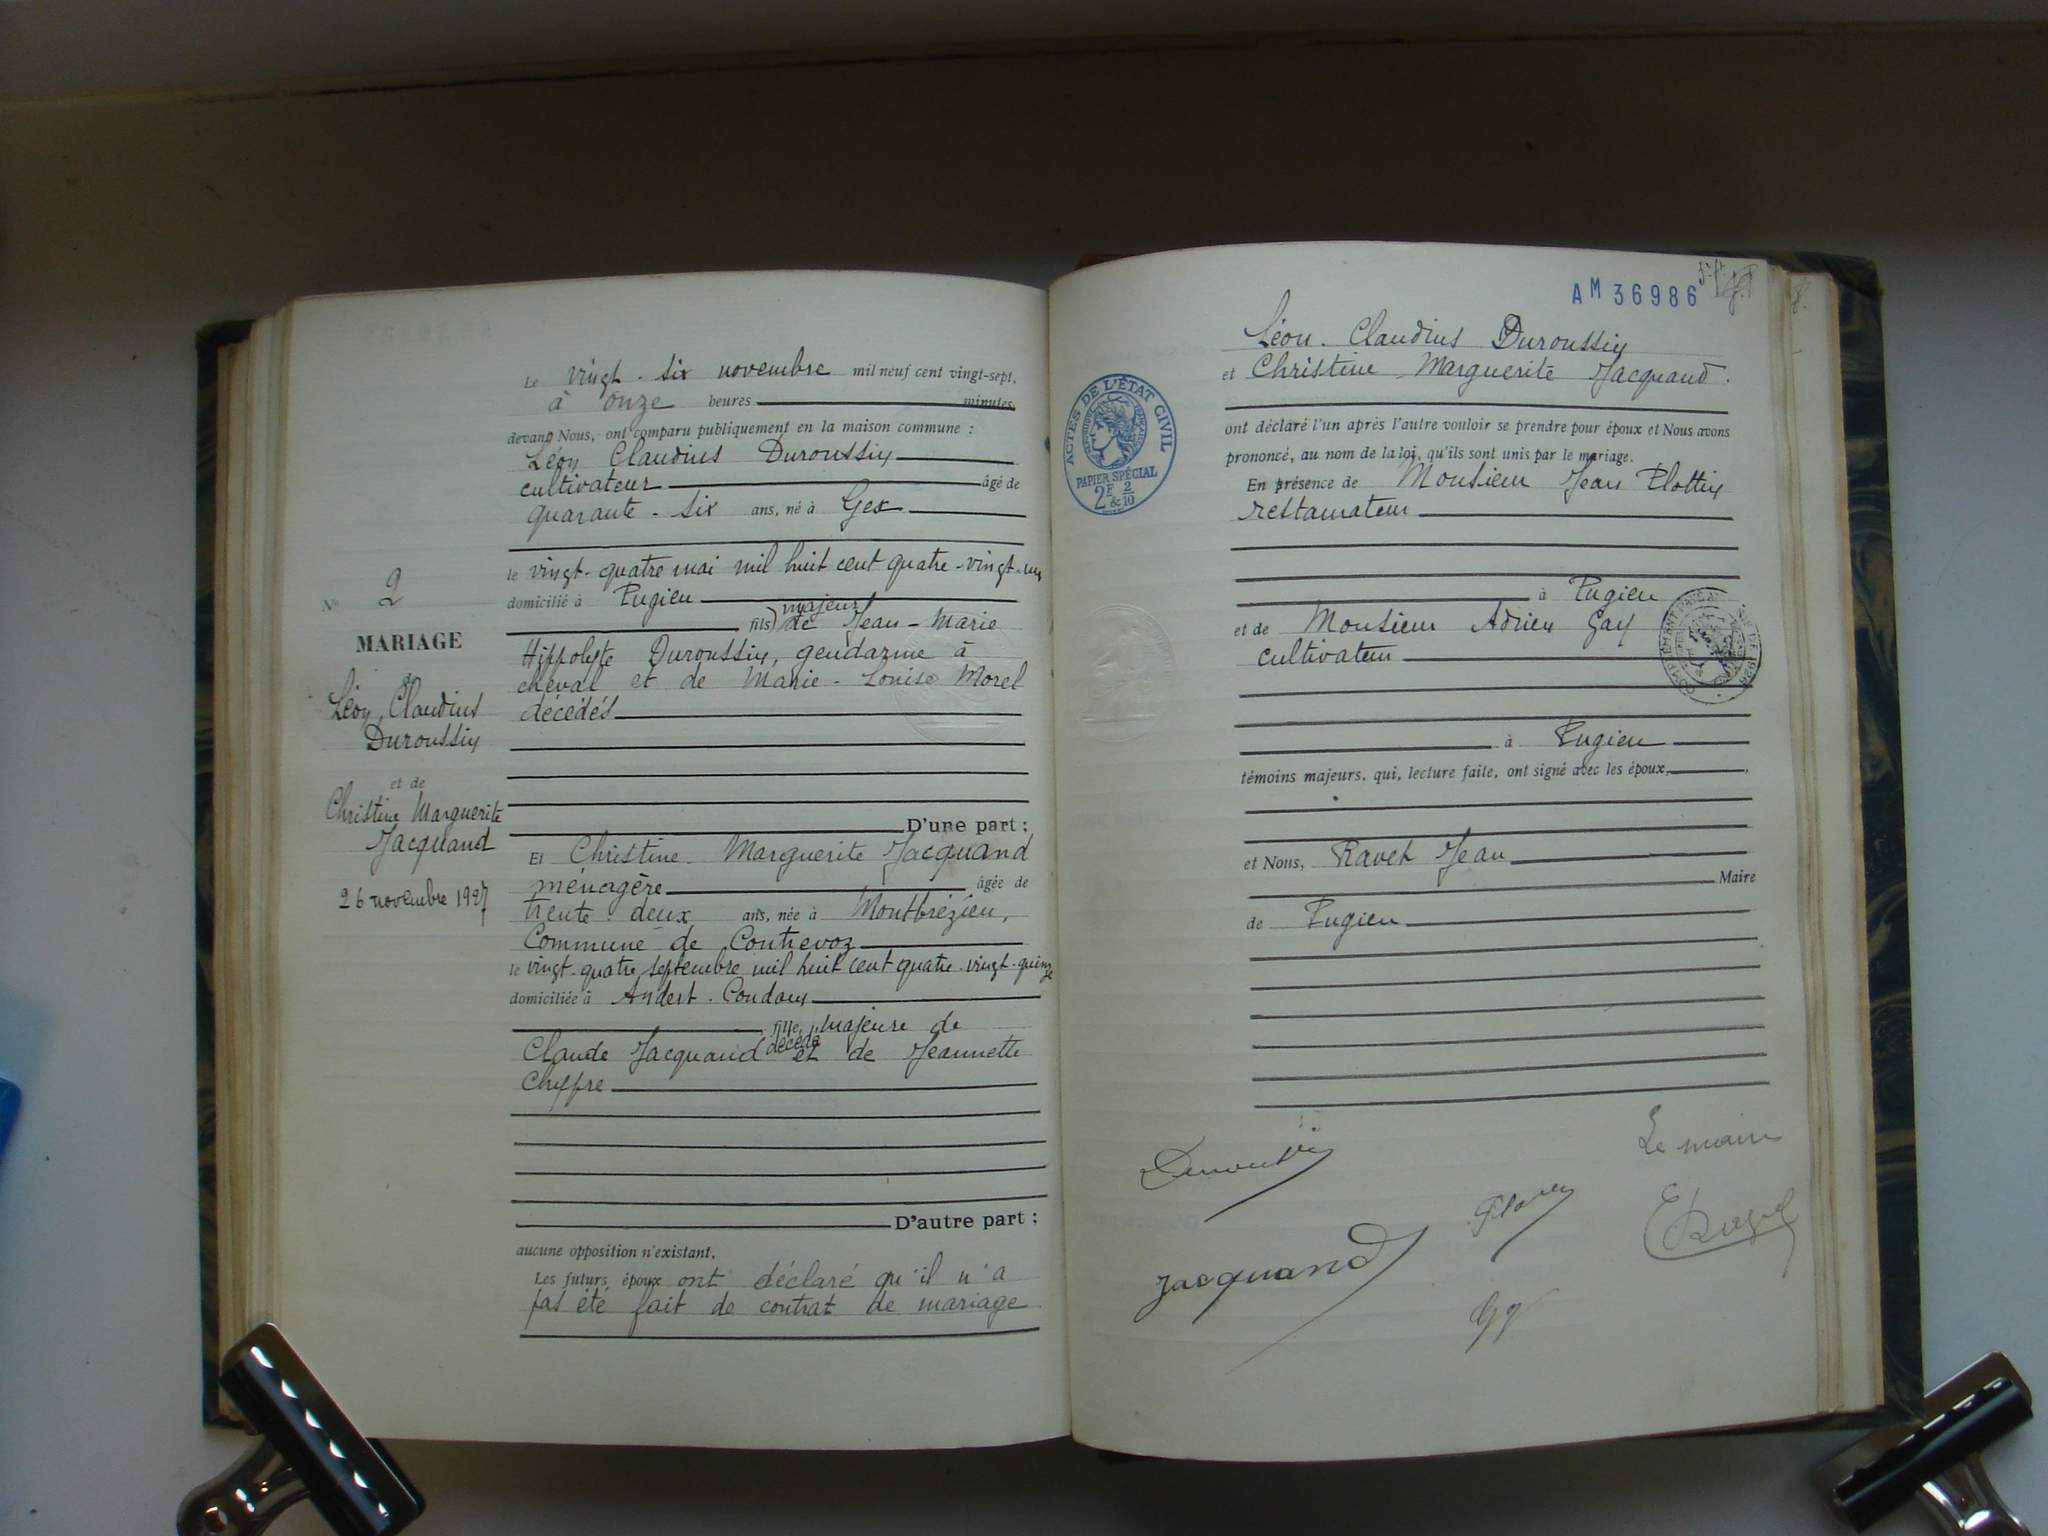 Le vingt-six novembre mil neuf cent vingt-sept,
à onze heures minutes
devant Nous, ont comparu publiquement en la maison commune :
Léon Claudius Duroussin
cultivateur âgé de
quarante-six ans, né à Gex
le vingt-quatre mai mil huit cent quatre-vingt-un
domicilié à Pugieu
majeur
fils de Jean-Marie
Hippolyte Duroussin, gendarme à
cheval et de Marie-Louise Morel
décédés
D'une part ;
Et Christine-Marguerite Jacquand
ménagère âgée de
trente-deux ans, née à Montbrézieu,
Commune de Contrevoz
le vingt-quatre septembre mil huit cent quatre-vingt-quinze
domiciliée à Andert-Condon
fille majeure de
Claude Jacquand décédé et de Jeannette
D'autre part ;
aucune opposition n'existant.
Les futurs époux ont déclaré qu'il n'a
pas été fait de contrat de mariage
N° 2
MARIAGE
de
Léon Claudius
Duroussin
et de
Christine Marguerite
Jacquand
26 novembre 1927
AM 36986
Léon-Claudius Duroussin
et Christine-Marguerite Jacquand.
ont déclaré l'un après l'autre vouloir se prendre pour époux et Nous avons
prononcé, au nom de la loi, qu'ils sont unis par le mariage.
En présence de Monsieur Jean Plottin
restaurateur
à Pugieu
et de Monsieur Adrien Gay
cultivateur
à Pugieu
témoins majeurs, qui, lecture faite, ont signé avec les époux,
et Nous, Ravet Jean
Maire
de Pugieu
ACTES DE L'ÉTAT CIVIL
PAPIER SPÉCIAL
2F 2/10
&
Duroussin
Jacquand
Le maire